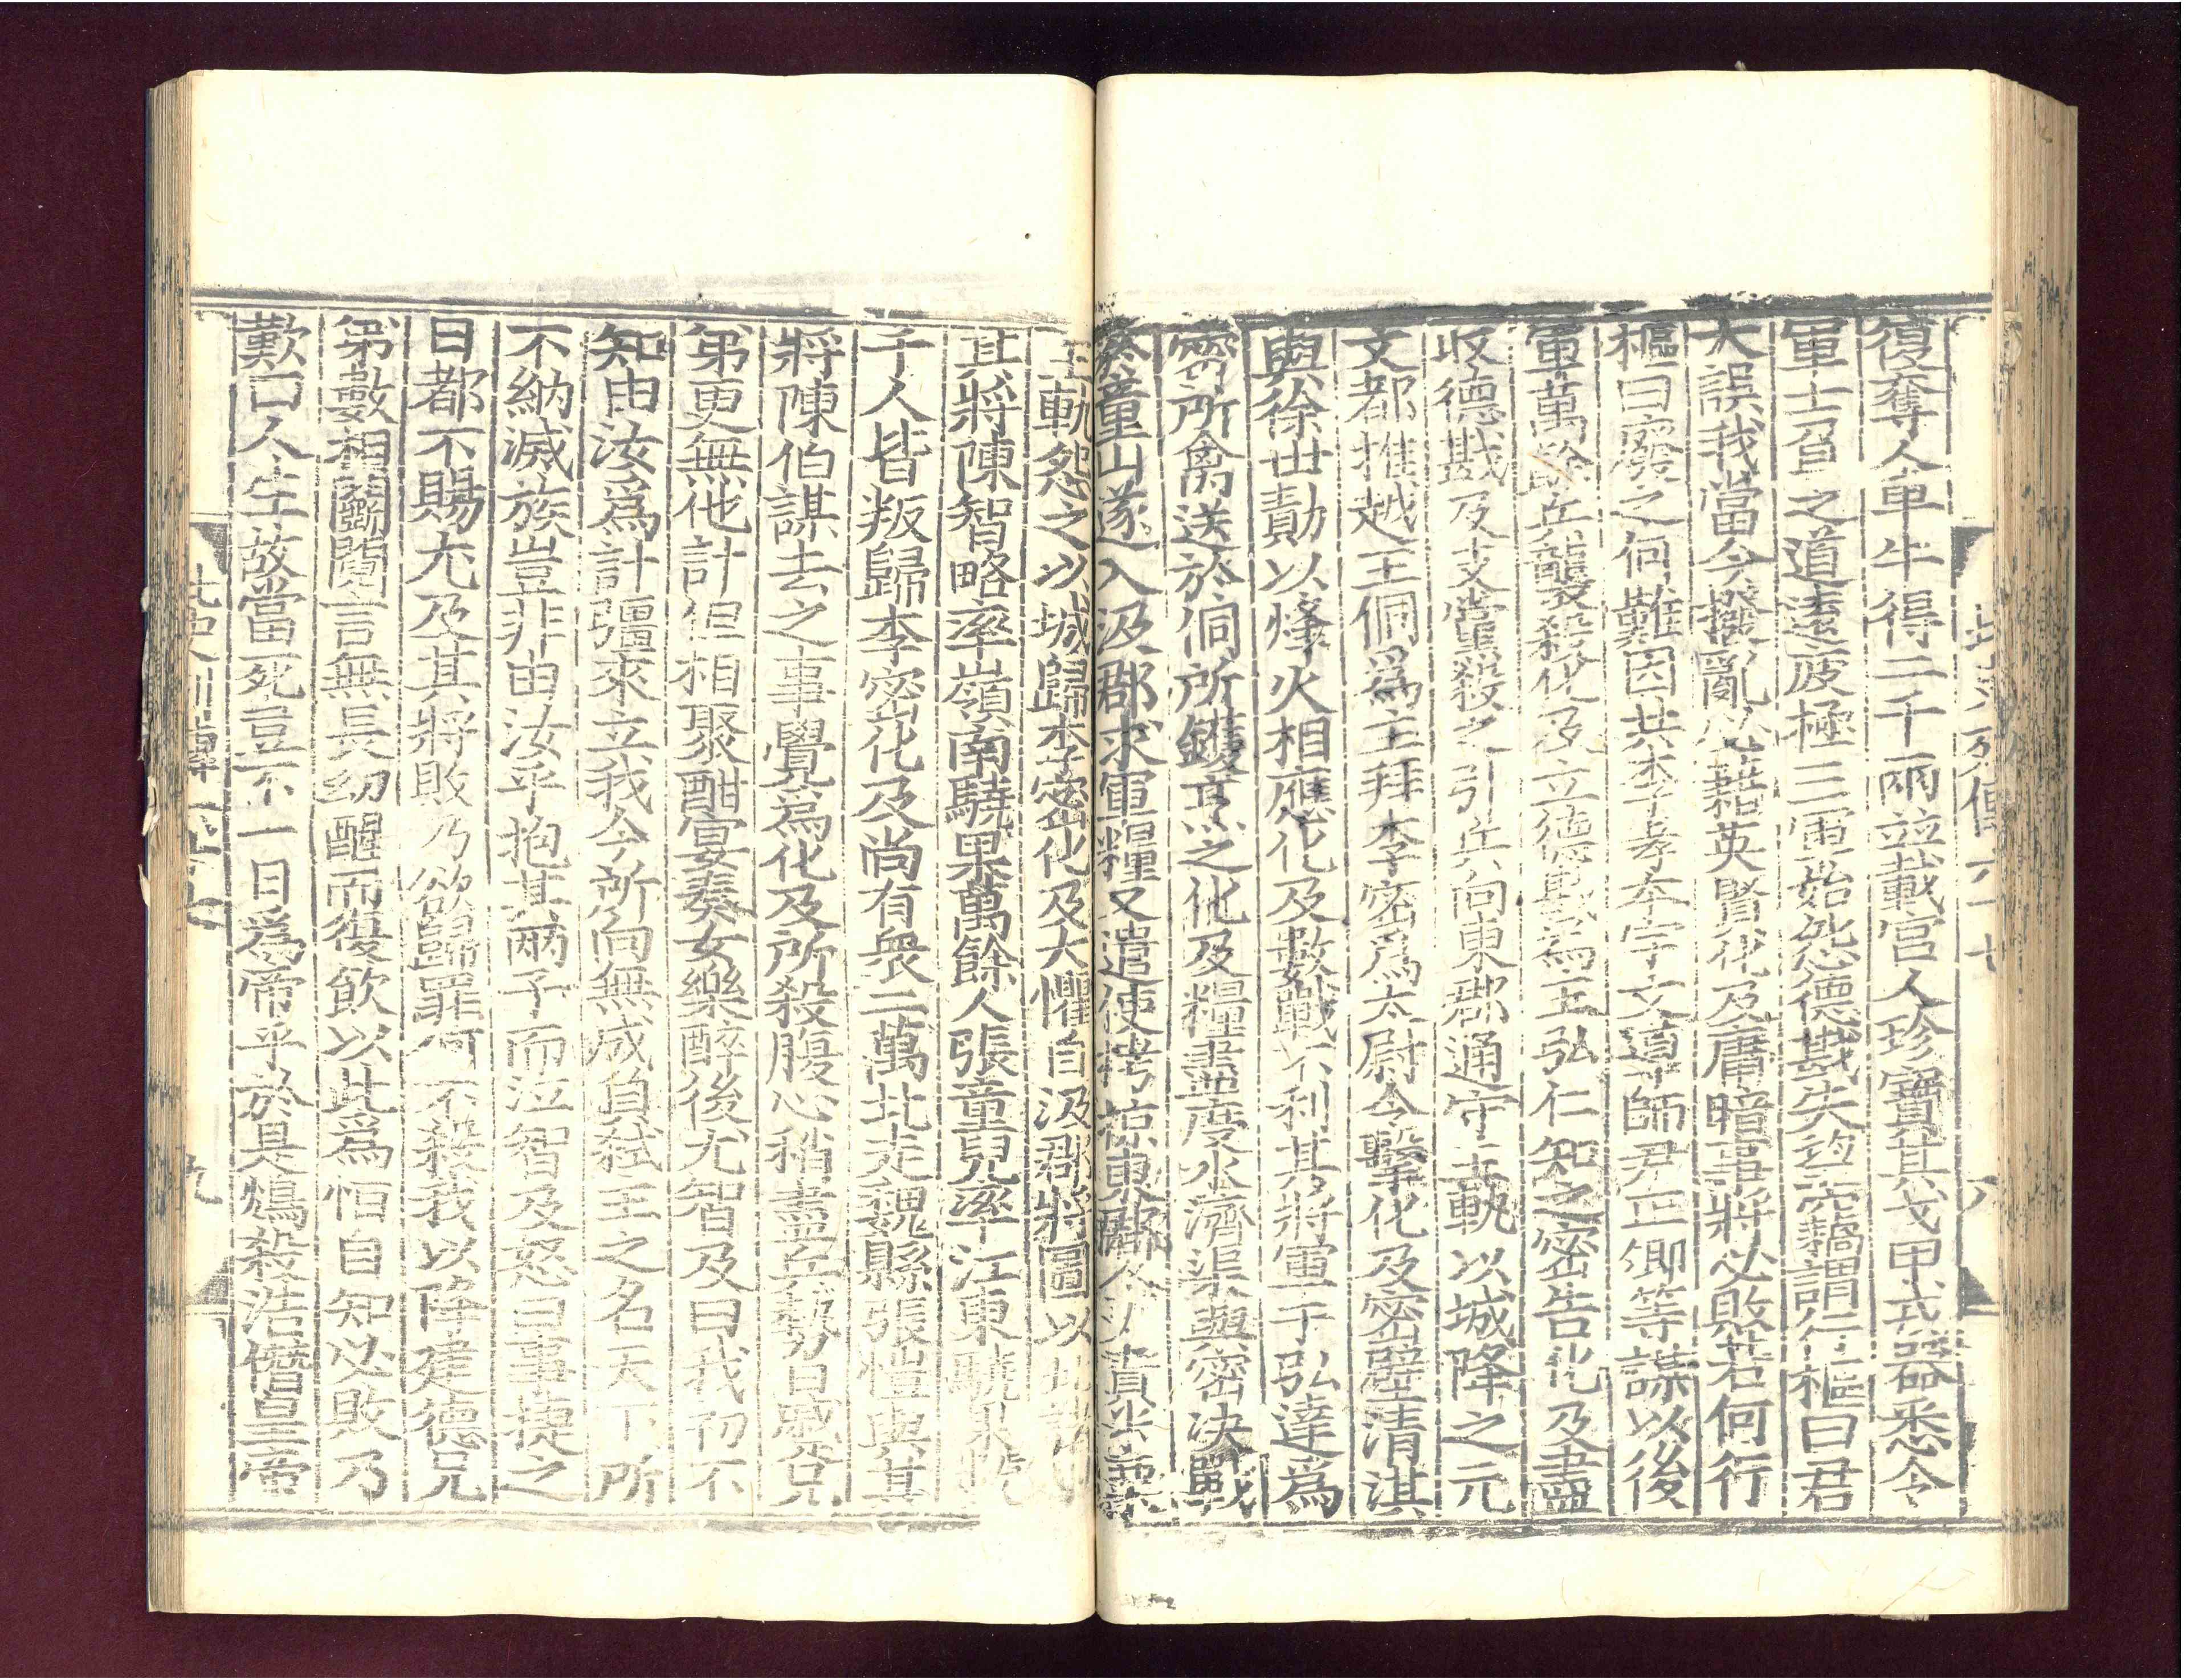 北史列傳六十七
八
復奪人車牛得二千兩並載宮人珍寶其戈甲戎器悉令
軍士負之道遠疲極三軍始怨德戡失望竊謂行樞曰君
大誤我當今撥亂必藉英賢化及庸暗事將必敗若何行
樞曰廢之何難因共李孝本宇文導師尹正卿等謀以後
軍萬餘兵襲殺化及立德戡爲主弘仁知之密告化及盡
收德戡及支黨殺之引兵向東郡通守王軌以城降之元
文都推越王侗爲主拜李密爲太尉令擊化及密壁清淇
與徐世勣以烽火相應化及數戰不利其將軍于弘達爲
密所禽送於侗所鑊烹之化及糧盡度水濟渠與密決戰
於童山遂入汲郡求軍糧又遣使拷掠東郡人吏責米粟
王軌怨之以城歸李密化及大懼自汲郡將圖以北諸
其將陳智略率嶺南驍果萬餘人張童兒率江東驍果數
千人皆叛歸李密化及尚有衆二萬北走魏縣張愷與其
將陳伯謀去之事覺爲化及所殺腹心稍盡兵勢日蹙兄
弟更無他計但相聚酣宴奏女樂醉後尤智及曰我初不
知由汝爲計彊來立我今所向無成負弒主之名天下所
不納滅族豈非由汝乎抱其兩子而泣智及怒曰事捷之
日都不賜尤及其將敗乃欲歸罪何不殺我以降建德兄
弟數相鬭鬩言無長幼醒而復飲以此爲恒自知必敗乃
歎曰人生故當死豈不一日爲帝乎於是鴆殺浩僭皇帝
北史列傳六十七
九